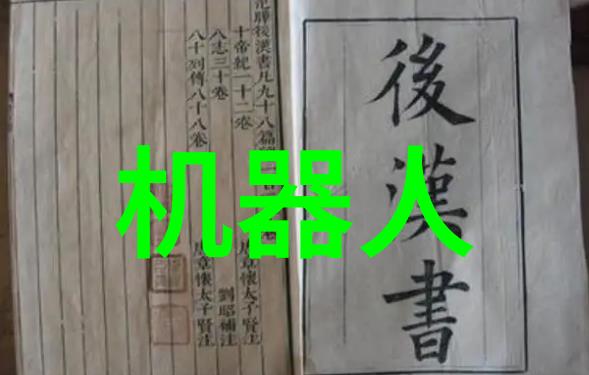 後漢書
范曄後漢書凡九十八篇
十帝紀一十二卷 唐章懷太子賢注
八志三十卷 劉昭補注
八十列傳八十八卷 唐章懷太子賢注
机器人